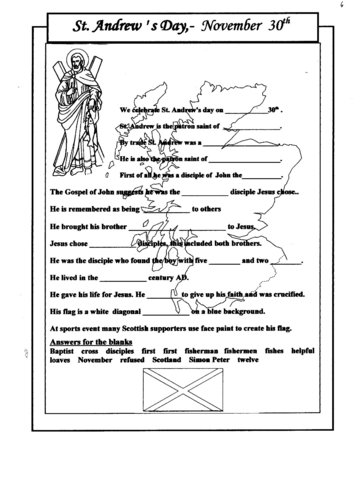 6
St. Andrew 's Day,- November 30th
We celebrate St. Andrew's day on ________ 30th .
St. Andrew is the patron saint of ________.
By trade St. Andrew was a ________.
He is also the patron saint of ________.
First of all he was a disciple of John the________.
The Gospel of John suggests he was the ________ disciple Jesus chose..
He is remembered as being ________ to others
He brought his brother ________ to Jesus.
Jesus chose ________ disciples, this included both brothers.
He was the disciple who found the boy with five ________ and two ________.
He lived in the ________ century AD.
He gave his life for Jesus. He ________ to give up his faith and was crucified.
His flag is a white diagonal ________ on a blue background.
At sports event many Scottish supporters use face paint to create his flag.
Answers for the blanks
Baptist cross disciples first first fisherman fishermen fishes helpful
loaves November refused Scotland Simon Peter twelve